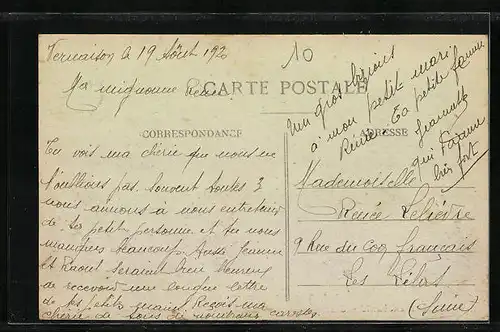 Vernaison le 19 Août 192
10
Ma mignonne Renée
CARTE POSTALE
CORRESPONDANCE
ADRESSE
Tu vois ma chérie que nous ne
t'oublions pas. Souvent toutes 3
nous aimons à nous entretenir
de ta petite personne et tu nous
manques beaucoup. Aussi Jeanne
et Raoul seraient bien heureux
de recevoir une longue lettre
de tes petits mains Reçois ma
chérie de tous de nombreuses caresses
Un gros bisous
à mon petit mari
Renée. Ta petite femme
Jeannette
qui t'aime
bien fort
Mademoiselle
Renée Lelièvre
9 Rue du Coq français
Les Lilas
(Seine)